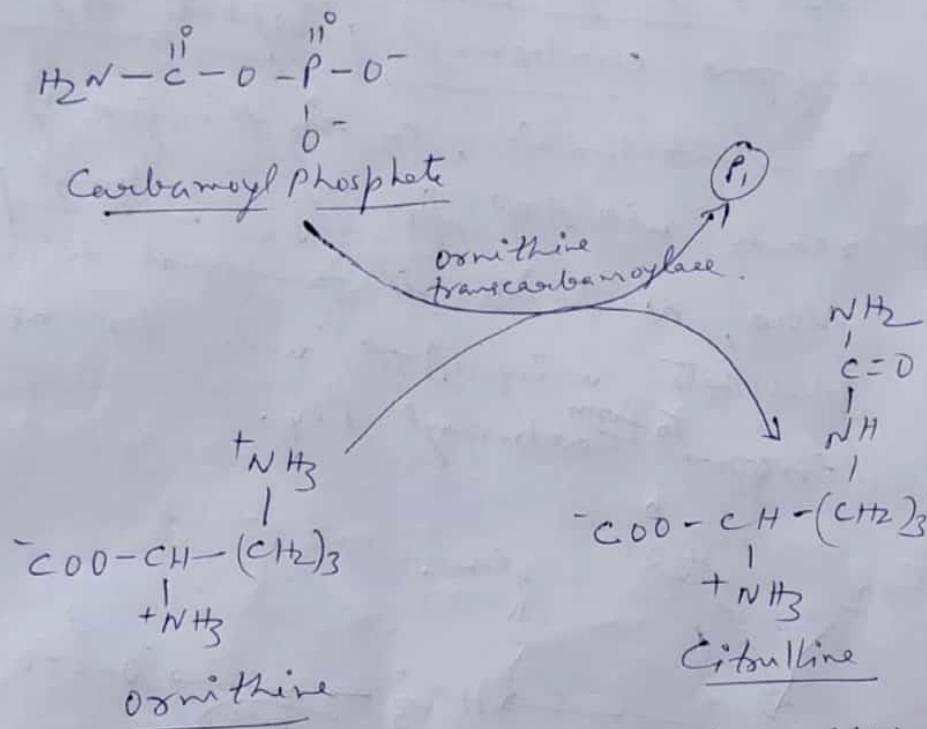 O O
|| ||
H2N-C-O-P-O⁻
|
O⁻
Carbamoyl Phosphate
Pi
ornithine
transcarbamoylase.
NH2
|
C=O
|
NH
|
⁻COO-CH-(CH2)3
|
+NH3
Citrulline
+NH3
|
⁻COO-CH-(CH2)3
|
+NH3
Ornithine